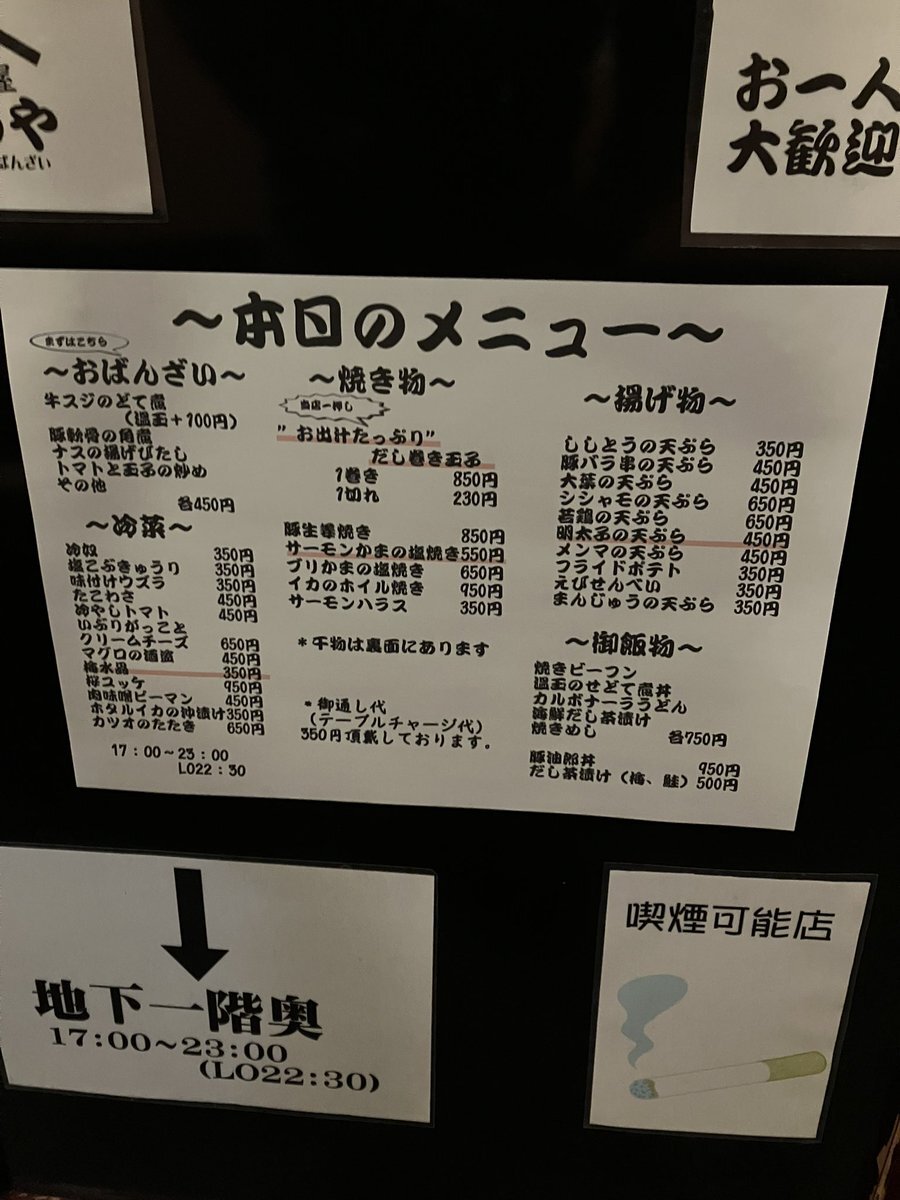 屋
や
ばんざい
お一人
大歓迎
～本日のメニュー～
まずはこちら
～おばんざい～
牛スジのどて煮
(温玉＋100円)
豚軟骨の角煮
ナスの揚げびたし
トマトと玉子の炒め
その他
各450円
～冷菜～
冷奴 350円
塩こぶきゅうり 350円
味付けウズラ 350円
たこわさ 450円
冷やしトマト 450円
いぶりがっこと
クリームチーズ 650円
マグロの酒盗 450円
梅水晶 350円
桜ユッケ 950円
肉味噌ピーマン 450円
ホタルイカの沖漬け 350円
カツオのたたき 650円
17：00～23：00
LO22：30
～焼き物～
当店一押し
"お出汁たっぷり"
だし巻き玉子
1巻き 850円
1切れ 230円
豚生姜焼き 850円
サーモンかまの塩焼き 550円
ブリかまの塩焼き 650円
イカのホイル焼き 950円
サーモンハラス 350円
＊干物は裏面にあります
＊御通し代
（テーブルチャージ代）
350円頂戴しております。
～揚げ物～
ししとうの天ぷら 350円
豚バラ串の天ぷら 450円
大葉の天ぷら 450円
シシャモの天ぷら 650円
若鶏の天ぷら 650円
明太子の天ぷら 450円
メンマの天ぷら 450円
フライドポテト 350円
えびせんべい 350円
まんじゅうの天ぷら 350円
～御飯物～
焼きビーフン
温玉のせどて煮丼
カルボナーラうどん
海鮮だし茶漬け
焼きめし
各750円
豚油郎丼 950円
だし茶漬け（梅、鮭） 500円
地下一階奥
17:00～23:00
(LO22:30)
喫煙可能店